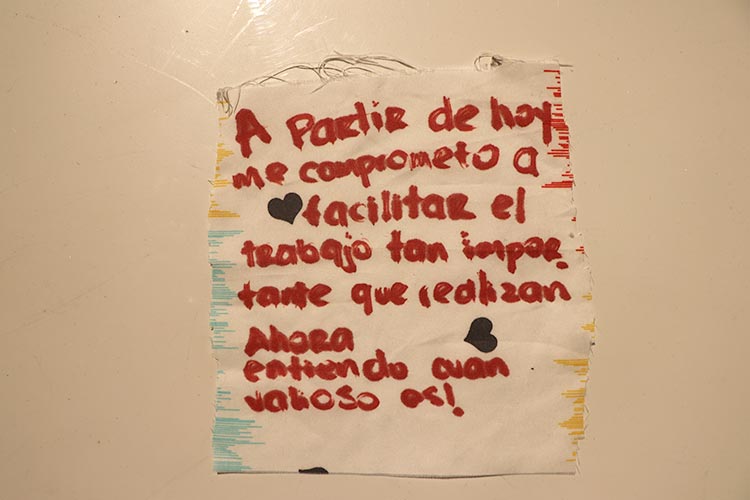 A Partir de hoy
me comprometo a
facilitar el
trabajo tan impor-
tante que realizan
Ahora
entiendo cuan
valioso es!